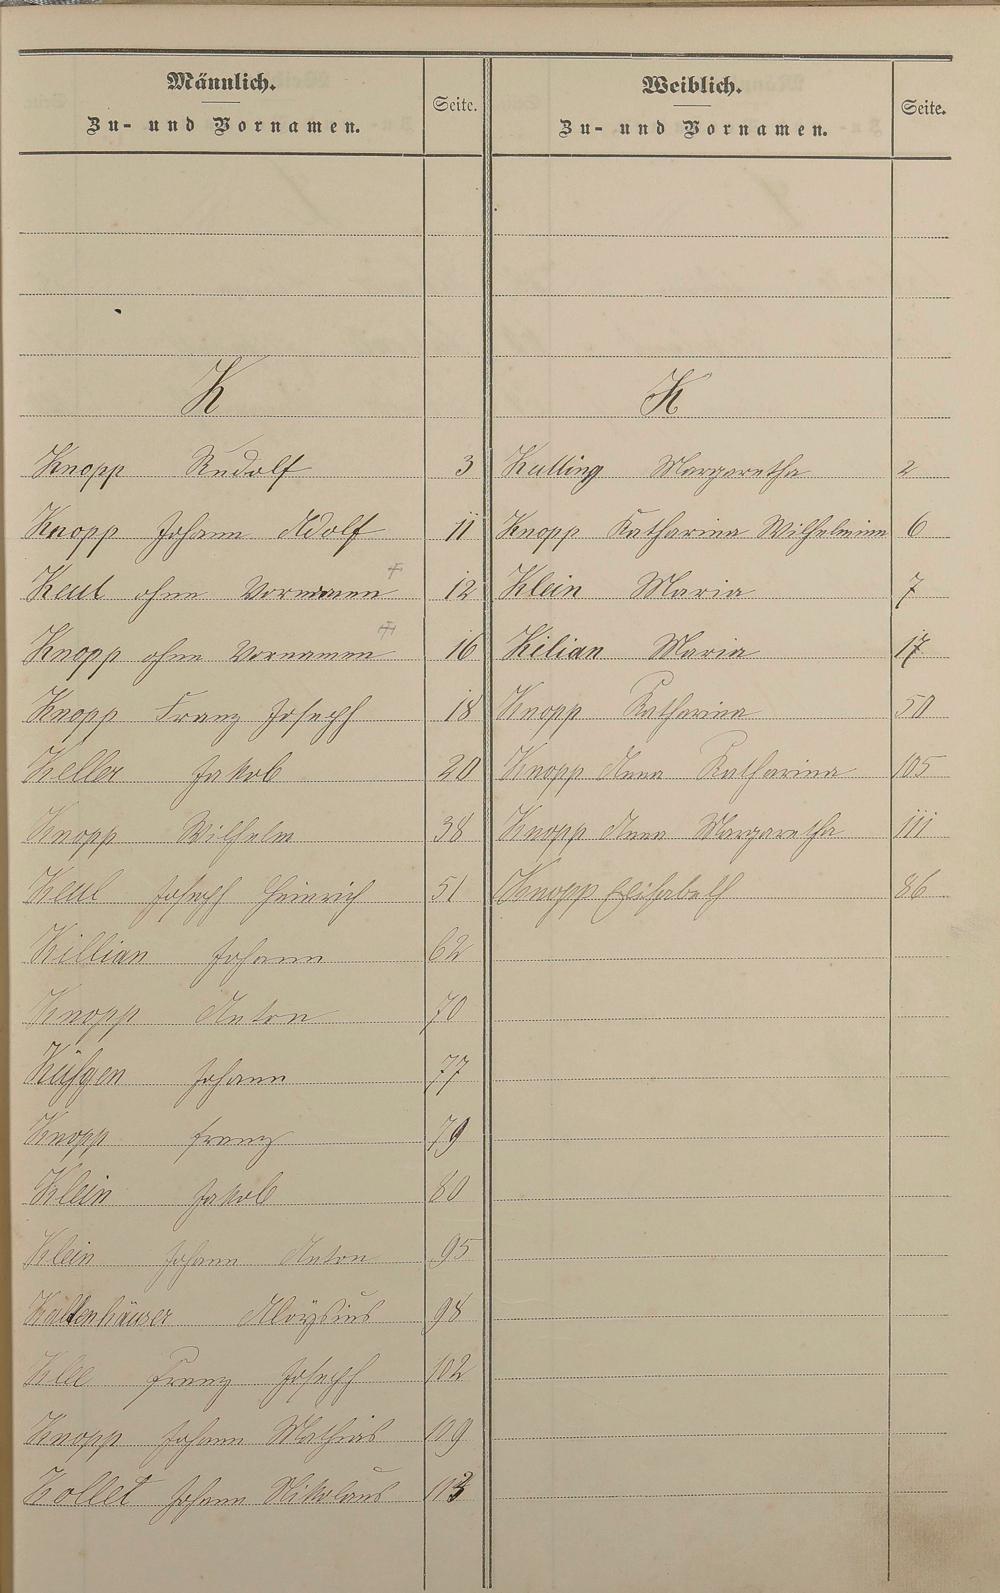 Männlich.
Zu- und Vornamen.
Seite.
K
Knopp Rudolf 3
Knopp Johann Adolf 11
Keul ohne Vornamen 12
Knopp ohne Vornamen 16
Knopp Franz Joseph 18
Keller Jakob 20
Knopp Wilhelm 38
Keul Joseph Heinrich 51
Killian Johann 62
Knopp Anton 70
Johann 77
Knopp Franz 79
Klein Jakob 80
Klein Johann Anton 95
Kaltenhäuser Aloysius 98
Klee Franz Joseph 102
Knopp Johann Mathias 109
Kollet Johann Nikolaus 113
Weiblich.
Zu- und Vornamen.
Seite.
K
Kulling Margaretha 2
Knopp Katharina Wilhelmine 6
Klein Maria 7
Kilian Maria 17
Knopp Katharina 50
Knopp Anna Katharina 105
Knopp Anna Margaretha 111
Knopp Elisabeth 86